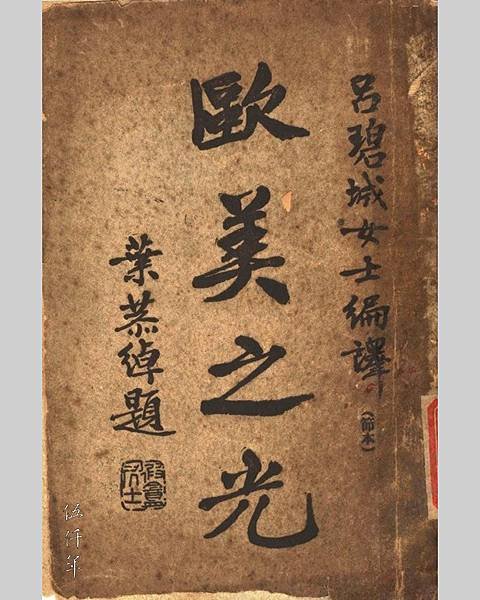 呂碧城女士編譯
(節本)
歐美之光
葉恭綽題
伍仟年